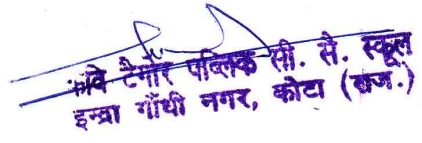 कवि टैगोर पब्लिक सी. सै. स्कूल
इन्द्रा गाँधी नगर, कोटा (राज.)